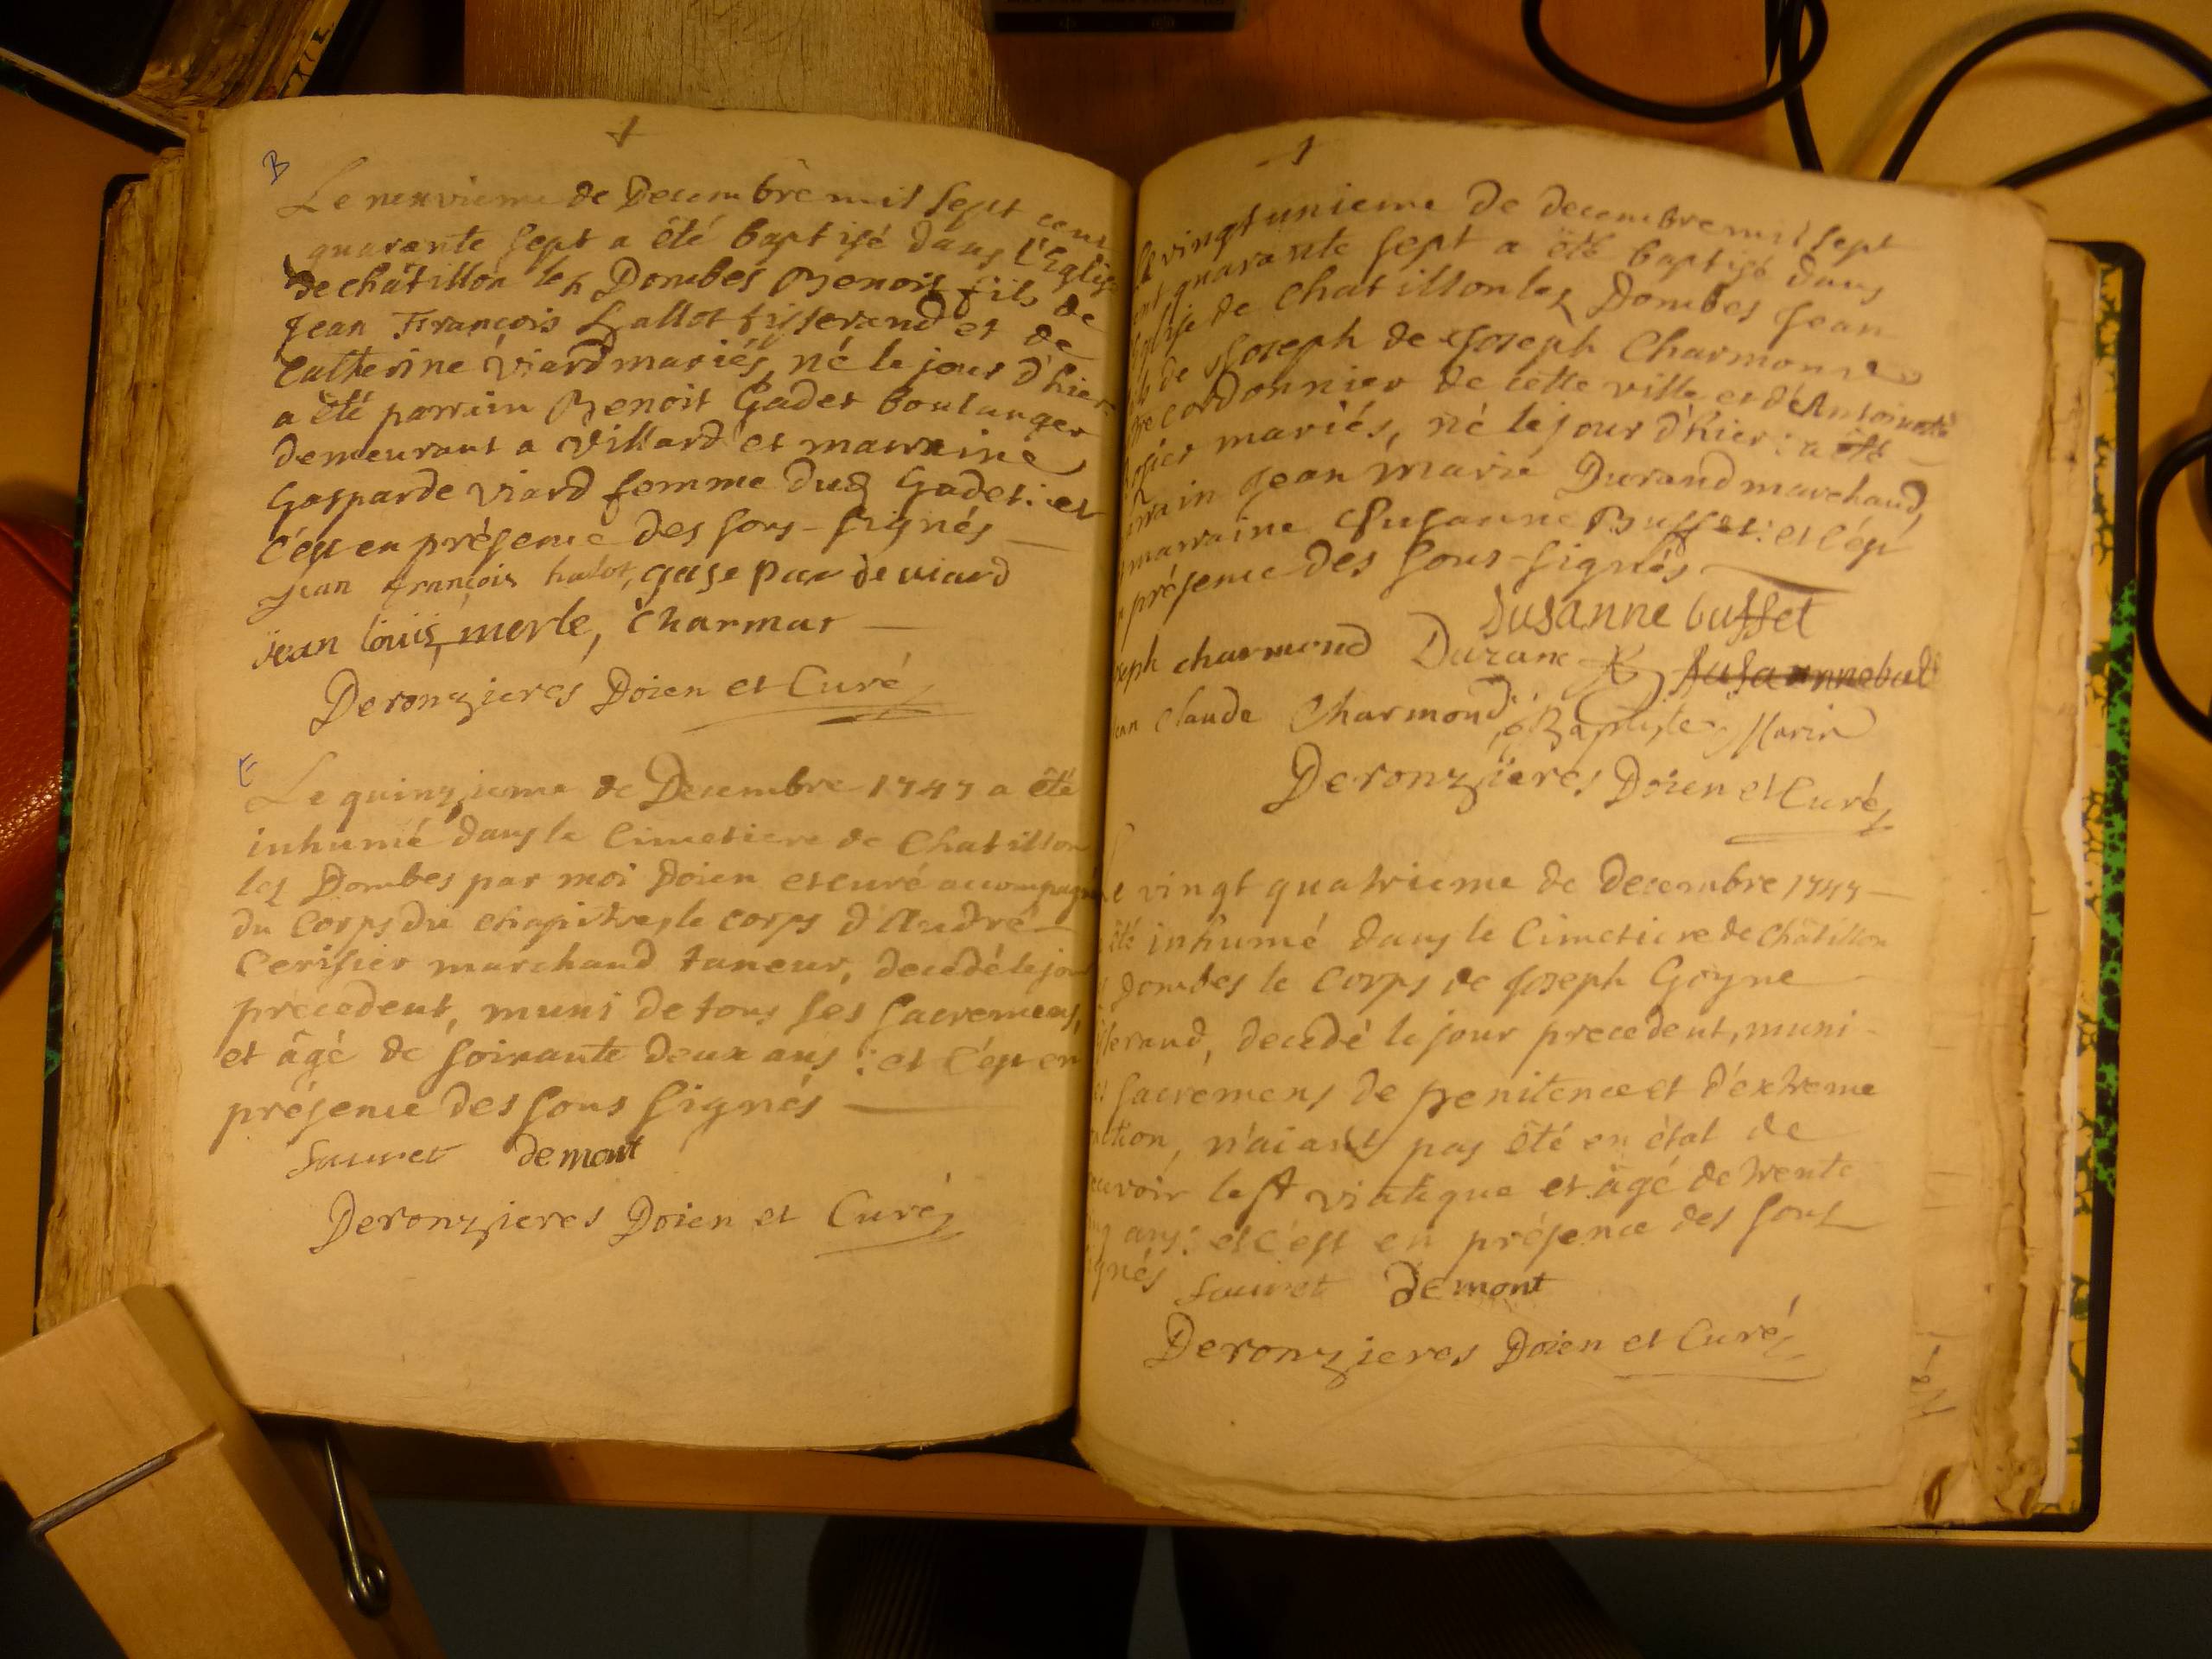 B
Le neuvieme de Decembre mil sept cent
quarante sept a été baptisé dans l'Eglise
de châtillon les Dombes Benoit fils de
Jean François Hallot tisserand et de
Catherine Viard mariés, né le jour d'hier:
a été parrain Benoit Gadet boulanger
demeurant a Villard et marraine
Gasparde Viard femme dud Gadet: et
c'est en présence des sous-signés
Jean françois halot, gaseparde viard
jean louis merle, Charmat
Deronzieres Doien et Curé
E
Le quinzieme de Decembre 1747 a été
inhumé dans le Cimetiere de Chatillon
les Dombes par moi Doien et curé accompagné
du Corps du chapitre, le corps d'André
Cerisier marchand taneur, decedé le jour
precedent, muni de tous ses sacremens,
et âgé de soixante deux ans: et c'est en
présence des sous signés
Sauret demont
Deronzieres Doien et Curé
le vingt unieme de decembre mil sept
quarante sept a été baptisé dans
de Chatillon les Dombes Jean
de Joseph de Joseph Charmond
cordonnier de cette ville et d'Antoinette
mariés, né le jour d'hier: a été
Jean Marie Durand marchand,
marraine Susanne Buffet: et c'est
présence des sous-signés
Susanne buffet
charmond Durand
Claude Charmond, Baptiste Marin
Deronzieres Doien et Curé
Le vingt quatrieme de decembre 1747
été inhumé dans le Cimetiere de Châtillon
Dombes le Corps de Joseph Goyne
decedé le jour precedent, muni
sacremens de penitence et d'extreme
n'aiant pas été en état de
le st viatique et âgé de trente
ans: et c'est en présence des sous
Sauret demont
Deronzieres Doien et Curé